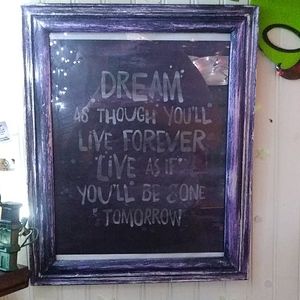 DREAM
AS THOUGH YOU'LL
LIVE FOREVER
LIVE AS IF
YOU'LL BE GONE
TOMORROW